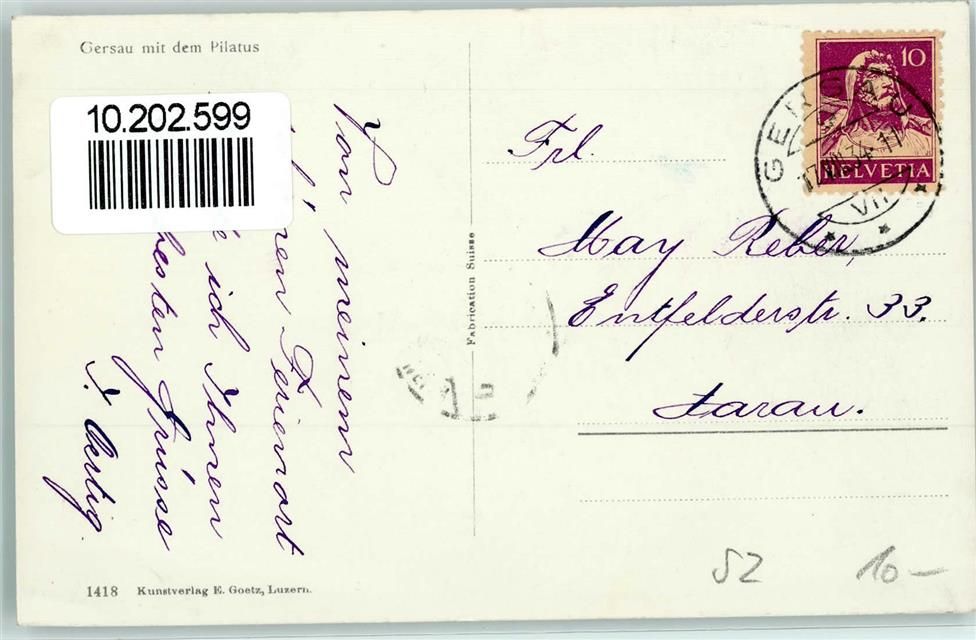 Gersau mit dem Pilatus
10.202.599
Von meinem
Ferienort
ich Ihnen
Grüsse
J. Aertig.
Frl.
May Reber,
Entfelderstr. 33.
Aarau.
10
HELVETIA
GERSAU
17.VII.34-11
VII
Fabrication Suisse
1418 Kunstverlag E. Goetz, Luzern.
SZ
10-